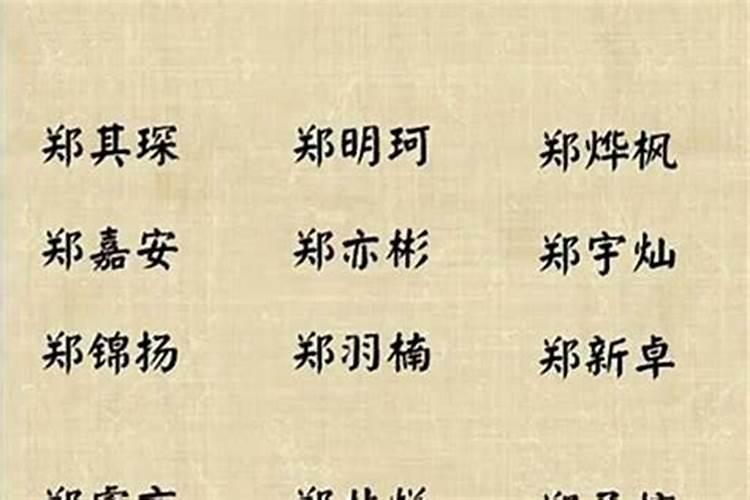 郑其琛 郑明珂 郑烨枫
郑嘉安 郑亦彬 郑宇灿
郑锦扬 郑羽楠 郑新卓